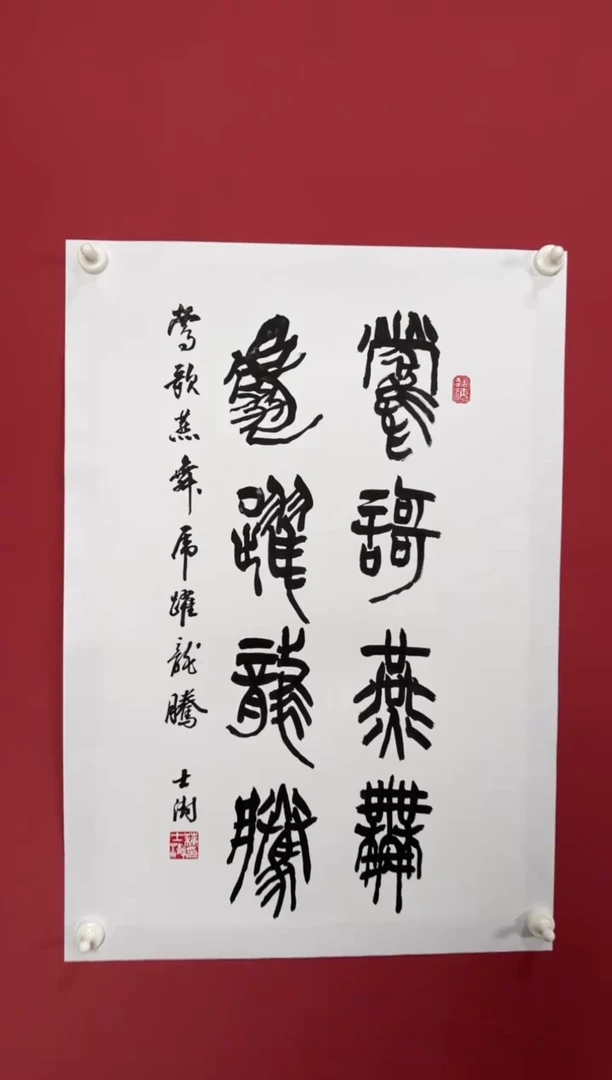 鶯謌燕舞
虎躍龍騰
鶯歌燕舞虎躍龍騰